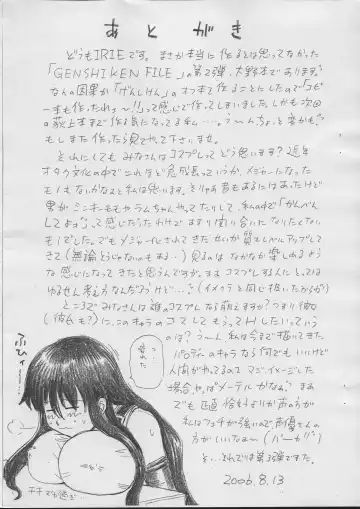 あとがき
どうもIRIEです。まさか本当に作るとは思ってなかった
「GENSHIKEN FILE」の第2弾、大野本であります。
なんの因果か「げんしけん」のオフ本を作ることにしたので「コピー
本も作ったれっ〜!!」って感じで作ってしまいました。しかも次回
の荻上本まで作る気になってるし…。う〜ん、ちょっと
もしまた作ったら見てやって下さいませ。
それにしてもみなさんはコスプレってどう思います?近年
オタク文化の中でこれほど急成長っていうか、メジャーになった
モノもないかなぁと私は思います。そりゃあ昔もあるにはあったけど
男がミンキーモモやラムちゃんやってたりして、私の中で「かんべん
してよぅ」って感じだったわけでまずお知り合いになりたくない
モノでした。でもメジャー化されてきたせいか質もレベルアップして
きて(無論とうじゃないのもある…)見るのはなかなか楽しめるよう
な感じになってきたと思うんですが。まあコスプレする人にとっては
ゆるせん考え方なんだろうけど…:(イメクラと同じ扱いだからか)
ところでみなさんは誰のコスプレなら萌えますか?つまり彼女
(彼氏も?)に、このキャラのコスしてもらってHしたいっていう
のは?う〜ん、私は今まで描いてきた
パロディーのキャラなら何でもいいけど
人間がやってるのをマジでイメージした
場合、やっぱメーテルかなあ?まあ
でも正直格好よりか声の方が
私はフェチが強いので声優さんの
方がいいなぁ〜(バーカ!!)
そ…、それでは第3弾でまた。
2006.8.13
ふひィ…
っ…
疲れた